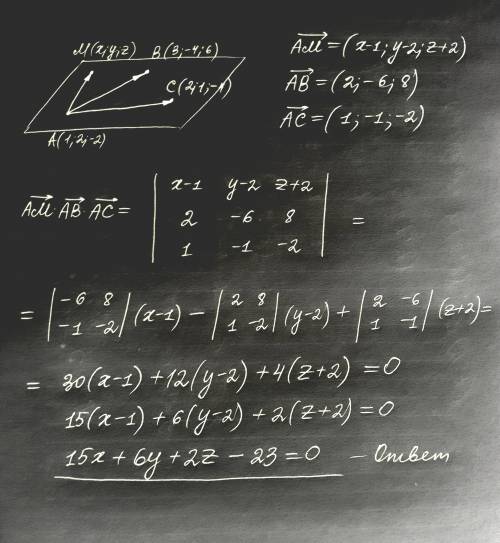 M(x;y;z) B(3;-4;6)
C(2;1;-4)
A(1;2;-2)
AM=(x-1;y-2;z+2)
AB=(2;-6;8)
AC=(1;-1;-2)
AM·AB·AC= | x-1 y-2 z+2 |
| 2 -6 8 | =
| 1 -1 -2 |
= |-6 8| (x-1) - |2 8| (y-2) + |2 -6| (z+2)=
|-1 -2| |1 -2| |1 -1|
= 30(x-1)+12(y-2)+4(z+2)=0
15(x-1)+6(y-2)+2(z+2)=0
15x+6y+2z-23=0 - Ответ